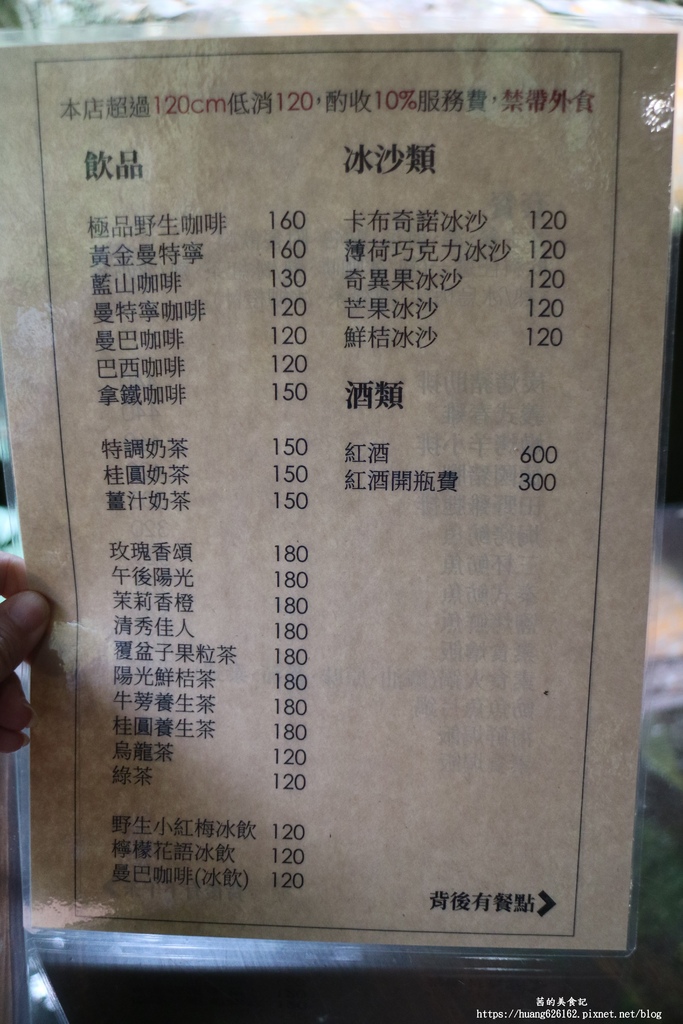 本店超過120cm低消120，酌收10%服務費，禁帶外食
飲品
極品野生咖啡 160
黃金曼特寧 160
藍山咖啡 130
曼特寧咖啡 120
曼巴咖啡 120
巴西咖啡 120
拿鐵咖啡 150
特調奶茶 150
桂圓奶茶 150
薑汁奶茶 150
玫瑰香頌 180
午後陽光 180
茉莉香橙 180
清秀佳人 180
覆盆子果粒茶 180
陽光鮮桔茶 180
牛蒡養生茶 180
桂圓養生茶 180
烏龍茶 120
綠茶 120
野生小紅梅冰飲 120
檸檬花語冰飲 120
曼巴咖啡(冰飲) 120
冰沙類
卡布奇諾冰沙 120
薄荷巧克力冰沙 120
奇異果冰沙 120
芒果冰沙 120
鮮桔冰沙 120
酒類
紅酒 600
紅酒開瓶費 300
背後有餐點
茜的美食記
https://huang626162.pixnet.net/blog